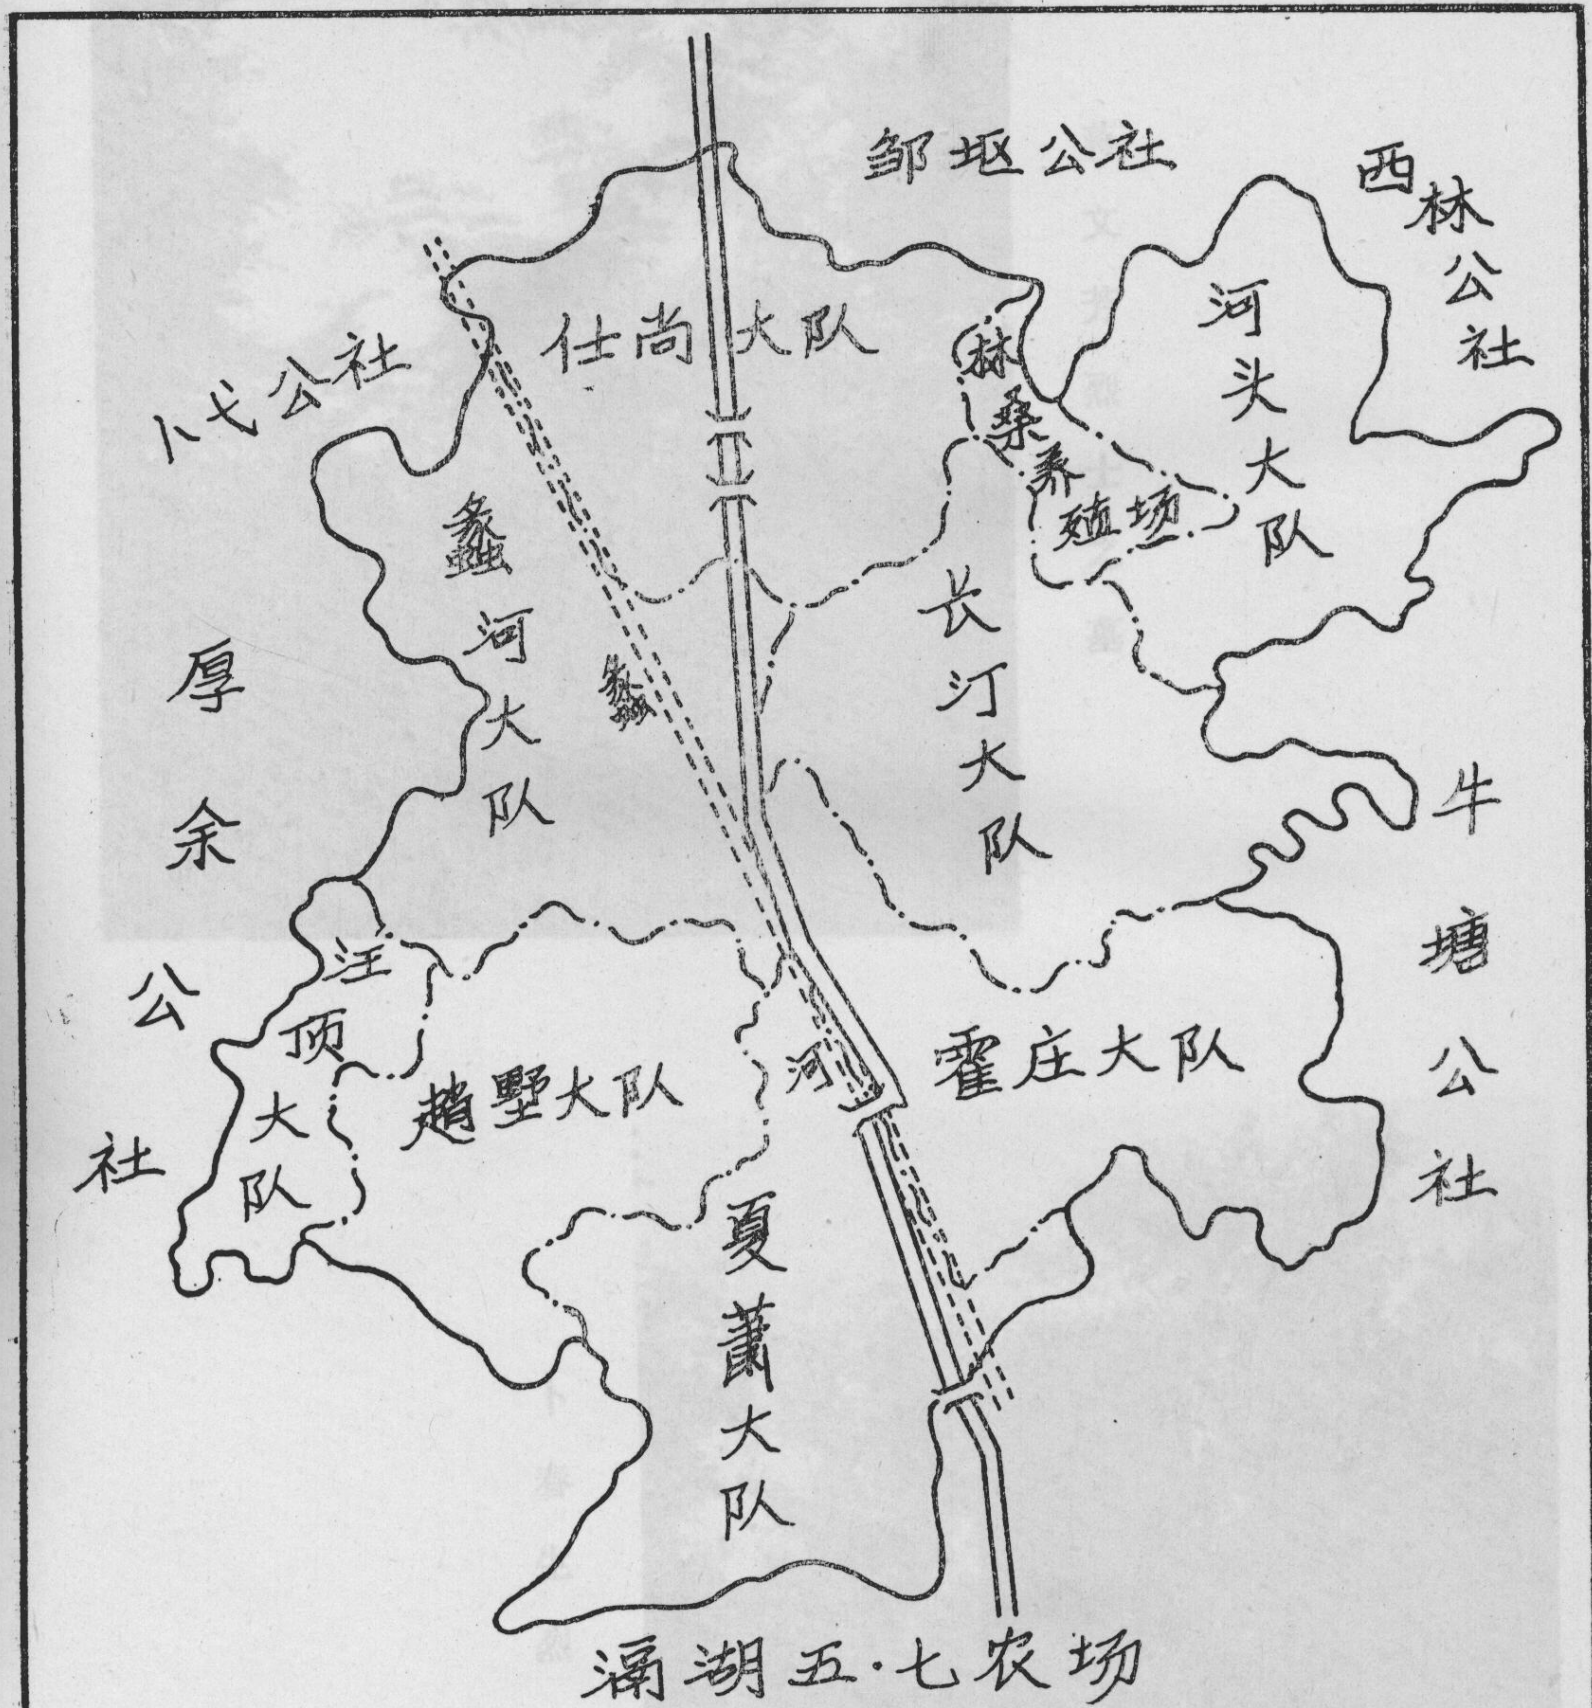 邹坵公社
西林公社
卜弋公社
仕尚大队
河头大队
林桑养殖场
蠡河大队
长汀大队
蠡河
厚余公社
牛塘公社
汪顶大队
趙墅大队
霍庄大队
夏蕭大队
滆湖五·七农场